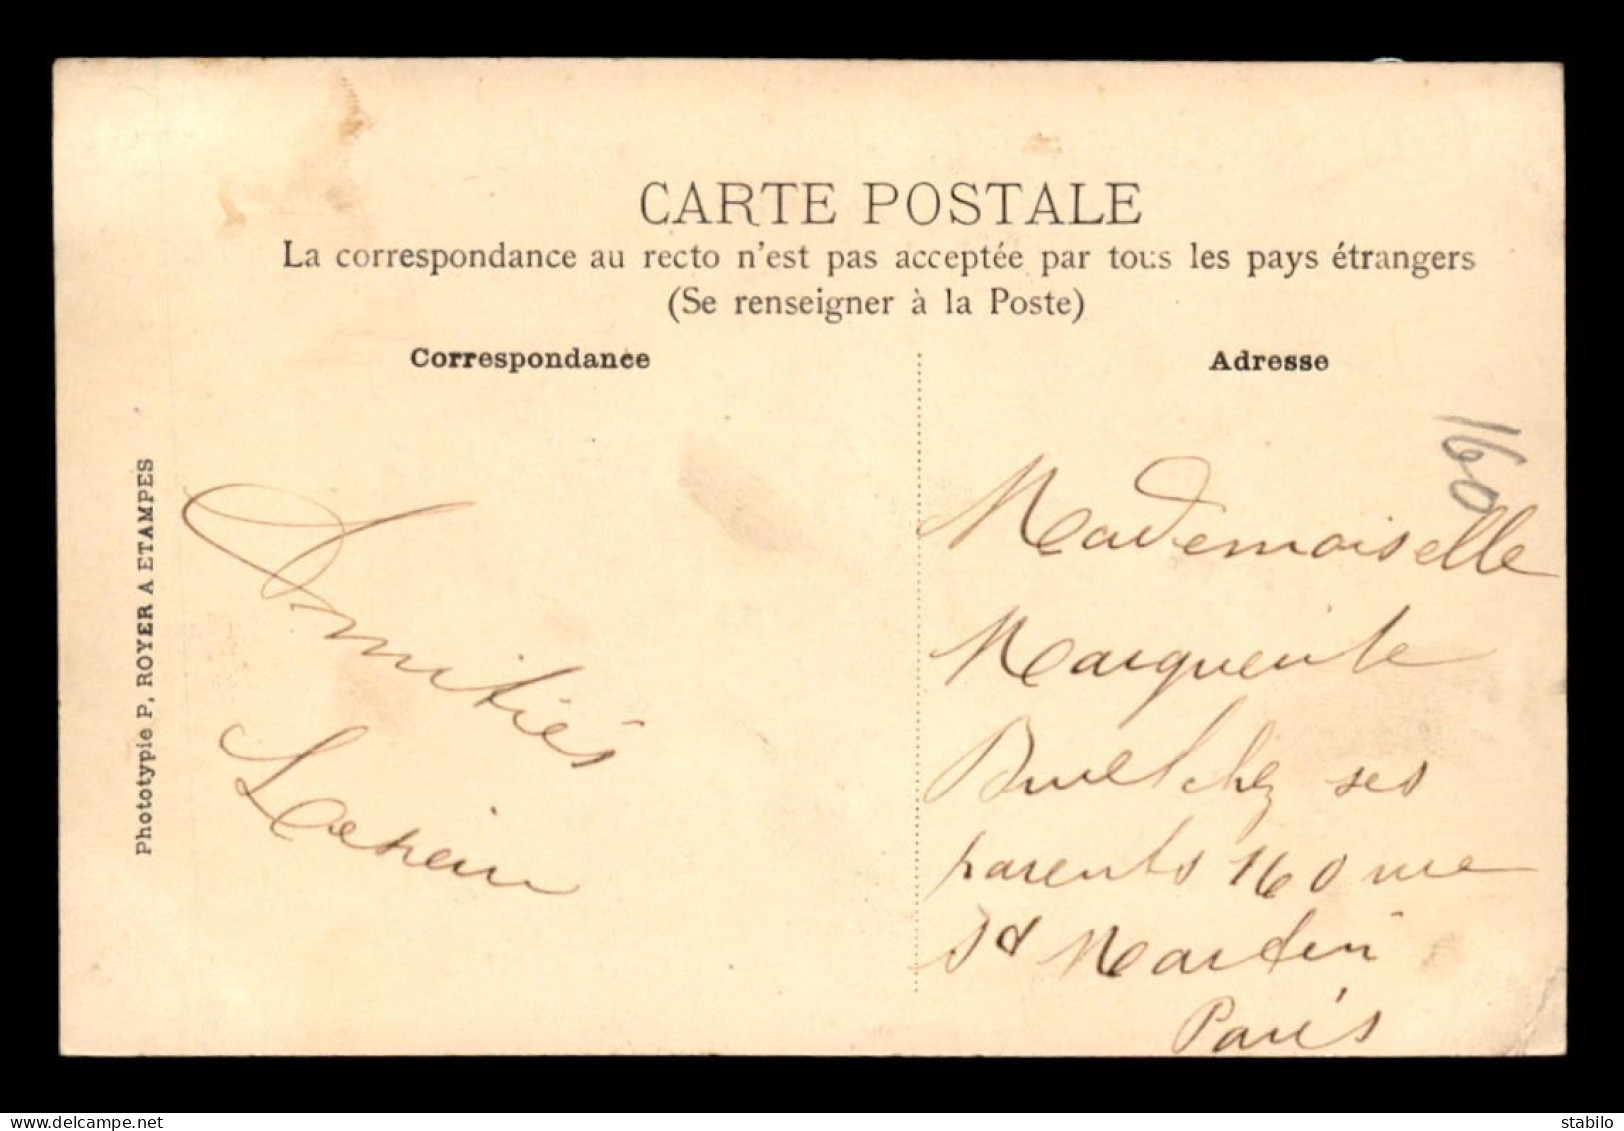 CARTE POSTALE
La correspondance au recto n'est pas acceptée par tous les pays étrangers
(Se renseigner à la Poste)
Correspondance
Adresse
Phototypie P. ROYER A ETAMPES
160
Amitiés
Mademoiselle
Marguerite
chez ses
parents 160 rue
St Martin
Paris
delcampe.net
stabilo